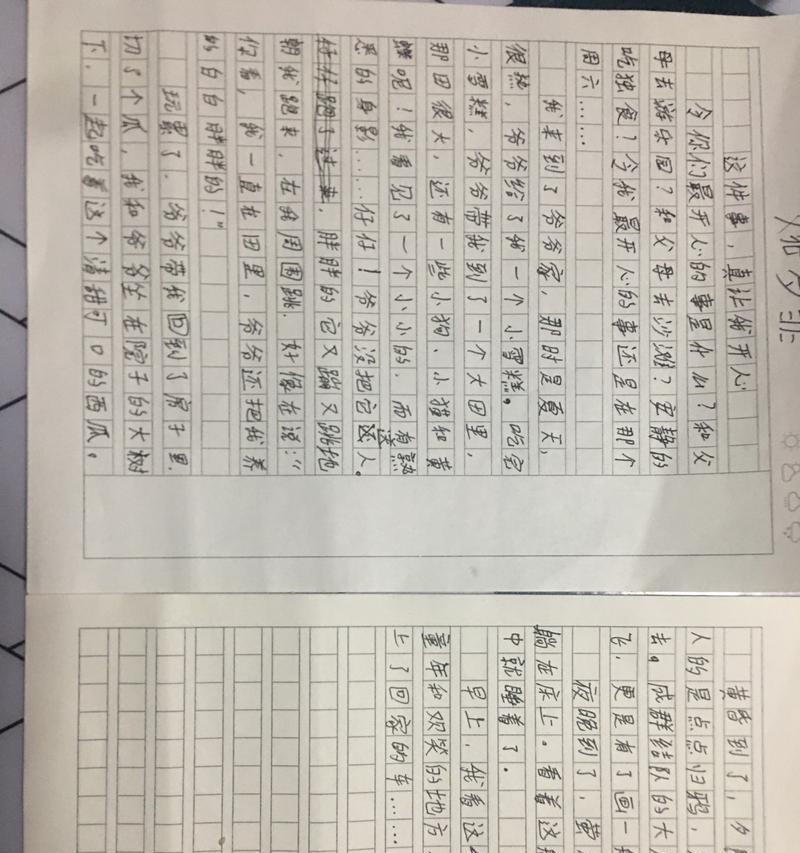 这件事，真让我开心
令你们最开心的事是什么？和父
母去游乐园？和父母去沙滩？安静的
吃独食？令我最开心的事还是在那个
周六……
我来到了爷爷家，那时是夏天，
很热，爷爷给了我一个小雪糕。吃完
小雪糕，爷爷带我到了一个大田里，
那田很大，还有一些小狗、小猫和黄
蝶呢！我看见了一个小小的，而有熟
悉的身影……仔仔！爷爷没把它送人。
仔仔跑了过来，胖胖的它又蹦又跳地
朝我跑来，在我周围跳。好像在说："
你看，我一直在田里，爷爷还把我养
的白白胖胖的！"
玩累了，爷爷带我回到了房子里.
切了个瓜，我和爷爷坐在院子的大树
下，一起吃着这个清甜可口的西瓜。
黄昏到了，夕
人的是点点归鸦，
去。成群结队的大
飞，更是有了画一
夜晚到了，黄
躺在床上。看着这
中就睡着了。
早上，我看这
童年和欢笑的地方
上了回家的车……